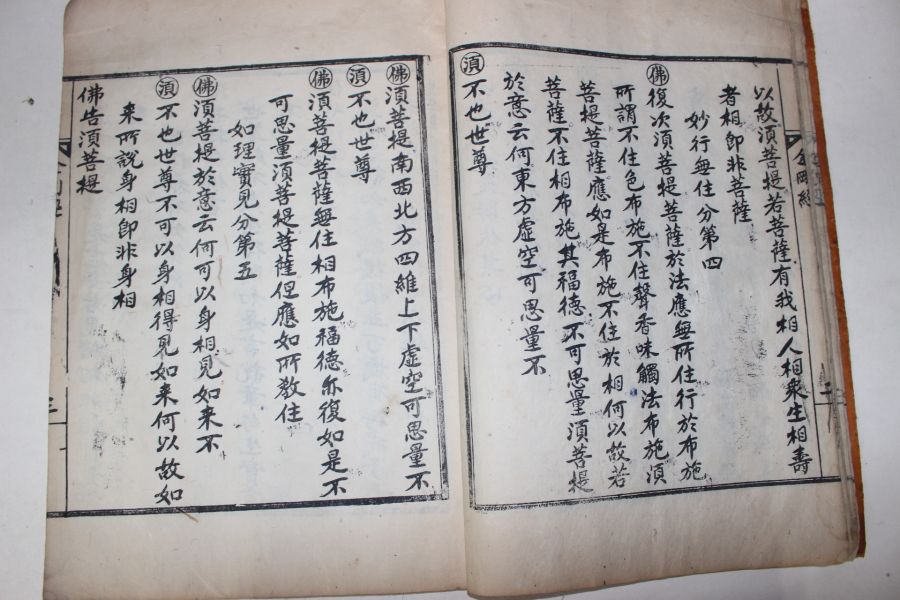 金剛經
二
以故須菩提若菩薩有我相人相衆生相壽
者相即非菩薩
妙行無住分第四
佛復次須菩提菩薩於法應無所住行於布施
所謂不住色布施不住聲香味觸法布施須
菩提菩薩應如是布施不住於相何以故若
菩薩不住相布施其福德不可思量須菩提
於意云何東方虛空可思量不
須不也世尊
佛須菩提南西北方四維上下虛空可思量不
須不也世尊
佛須菩提菩薩無住相布施福德亦復如是不
可思量須菩提菩薩但應如所敎住
如理實見分第五
佛須菩提於意云何可以身相見如来不
須不也世尊不可以身相得見如来何以故如
来所說身相即非身相
佛告須菩提
三